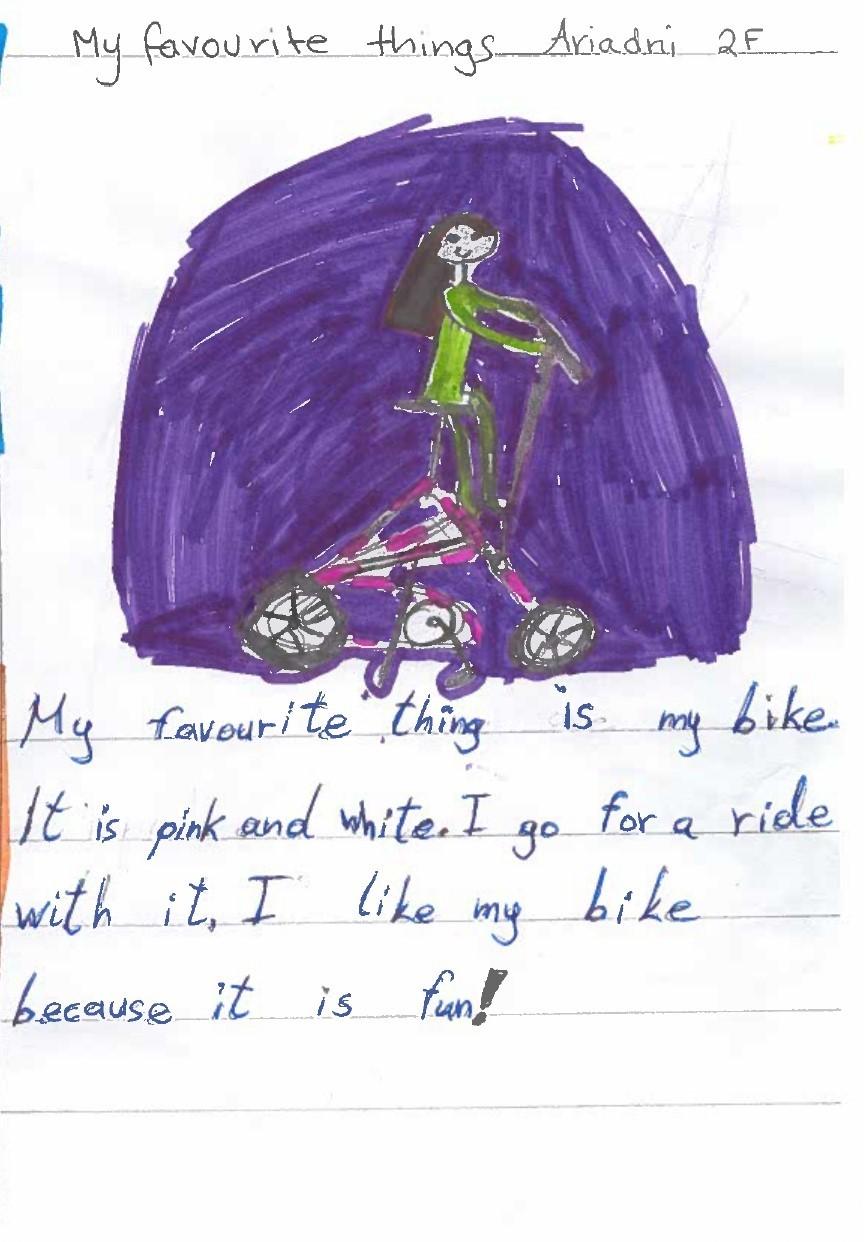 My favourite things Ariadni 2F
My favourite thing is my bike.
It is pink and white. I go for a ride
with it. I like my bike
because it is fun!